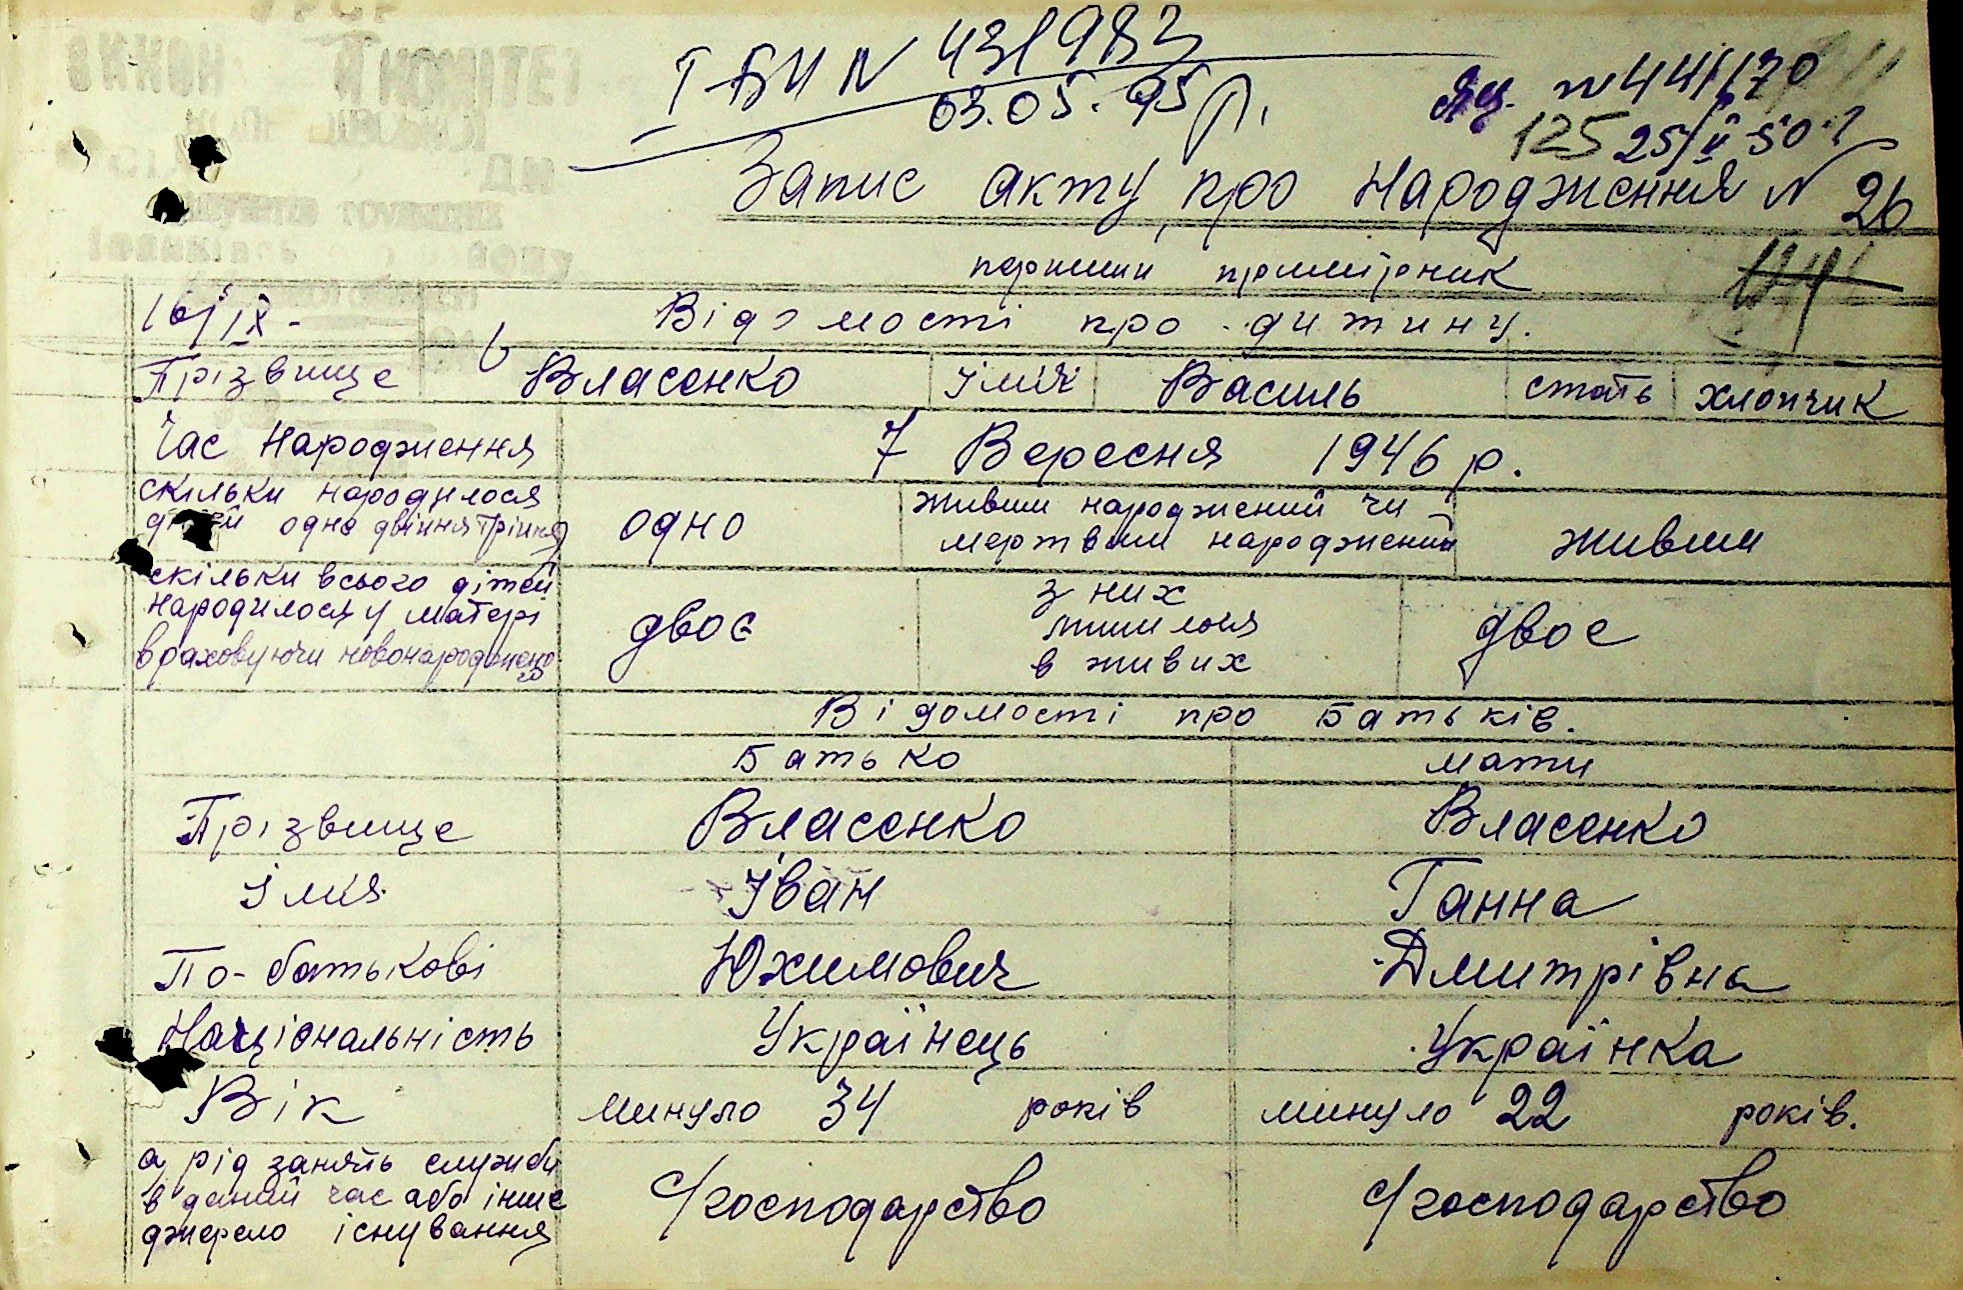 УРСР
ВИКОН Й КОМІТЕТ
І-БИ N 431983
03.05.95 р.
N 441170
125 25/V 50 г
Запис акту про народження N 26
перший примірник
16/IX-
Відомості про дитину.
Прізвище Власенко Імя Василь стать хлопчик
Час народження 7 Вересня 1946 р.
скільки народилося дітей одне двійня трійня одно живим народжений чи мертвим народжений живим
скільки всього дітей народилося у матері враховуючи новонароджено двоє з них лишилося в живих двоє
Відомості про батьків.
Батько мати
Прізвище Власенко Власенко
Імя Іван Ганна
По-батькові Юхимович Дмитрівна
Національність Українець Українка
Вік минуло 34 років минуло 22 років.
а, рід занять служби в даний час або інше джерело існування с/господарство с/господарство